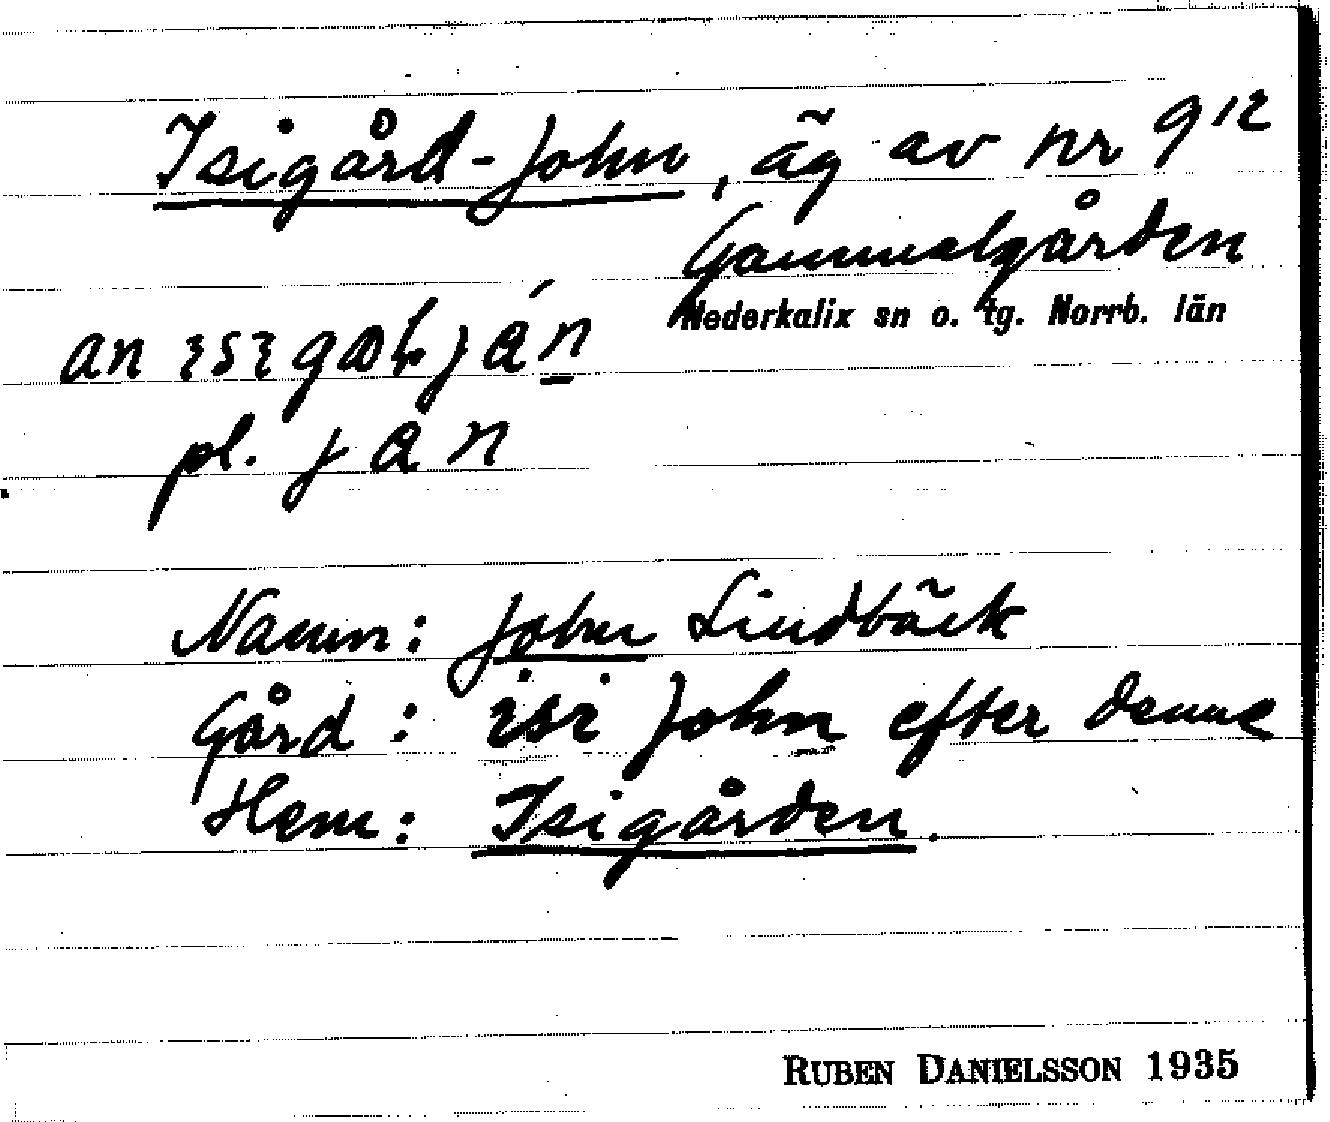 Isigård-John, äg av nr 9¹²
Gammelgården
Nederkalix sn o. tg. Norrb. län
an ısıgɑɽ ján
pl. jan
Namn: John Lindbäck
Gård: isi John efter denne
Hem: Isigården.
RUBEN DANIELSSON 1935